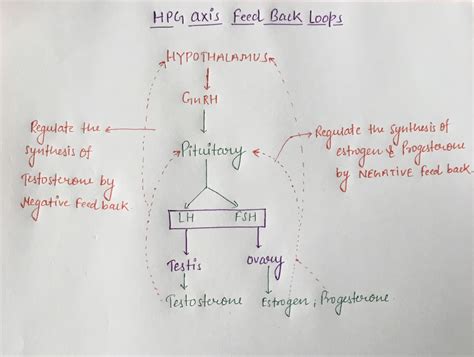 HPG axis Feed Back Loops
HYPOTHALAMUS
GnRH
Regulate the
synthesis of
Testosterone by
Negative Feed back.
Pituitary
Regulate the synthesis of
estrogen & Progesterone
by NEGATIVE Feed back.
LH FSH
Testis ovary
Testosterone Estrogen, Progesterone.